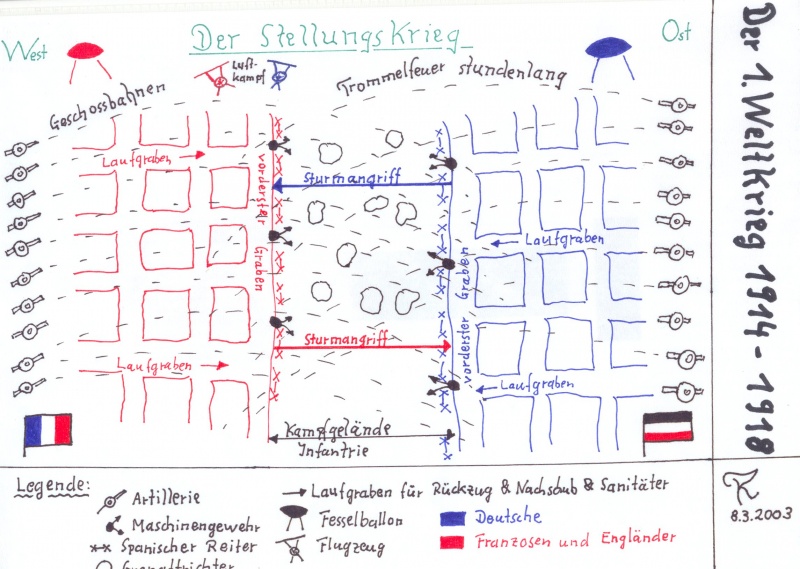 Der Stellungskrieg
West
Ost
Luft-
kampf
Trommelfeuer stundenlang
Geschossbahnen
Laufgraben
vorderster Graben
Sturmangriff
Laufgraben
vorderster Graben
Sturmangriff
Laufgraben
Laufgraben
Kampfgelände
Infantrie
Der 1. Weltkrieg 1914 - 1918
Legende:
Artillerie
Maschinengewehr
Spanischer Reiter
Granattrichter
Laufgraben für Rückzug & Nachschub & Sanitäter
Fesselballon
Flugzeug
Deutsche
Franzosen und Engländer
8.3.2003